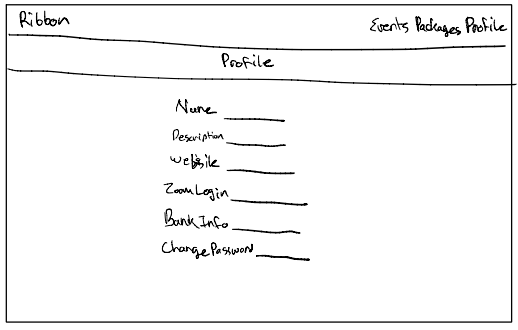 Ribbon Events Packages Profile
Profile
Name
Description
Website
Zoom Login
Bank Info
Change Password